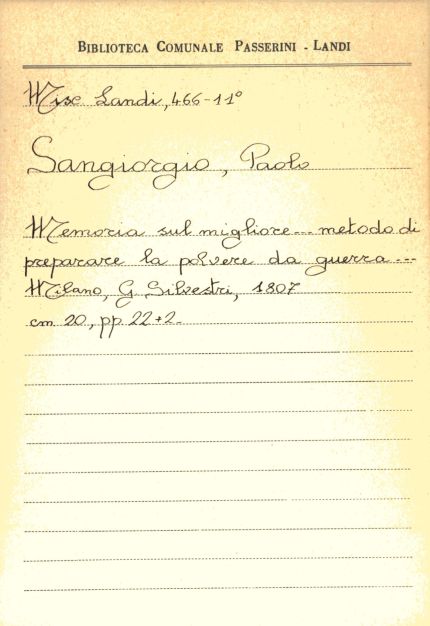 BIBLIOTECA COMUNALE PASSERINI - LANDI
Misc Landi, 466-11°
Sangiorgio, Paolo
Memoria sul migliore --- metodo di
preparare la polvere da guerra ---
Milano, G. Silvestri, 1807
cm 20, pp 22+2.